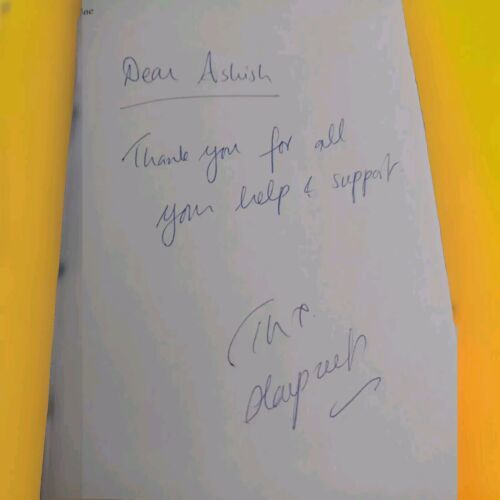 Dear Ashish
Thank you for all
your help & support
Harpreet